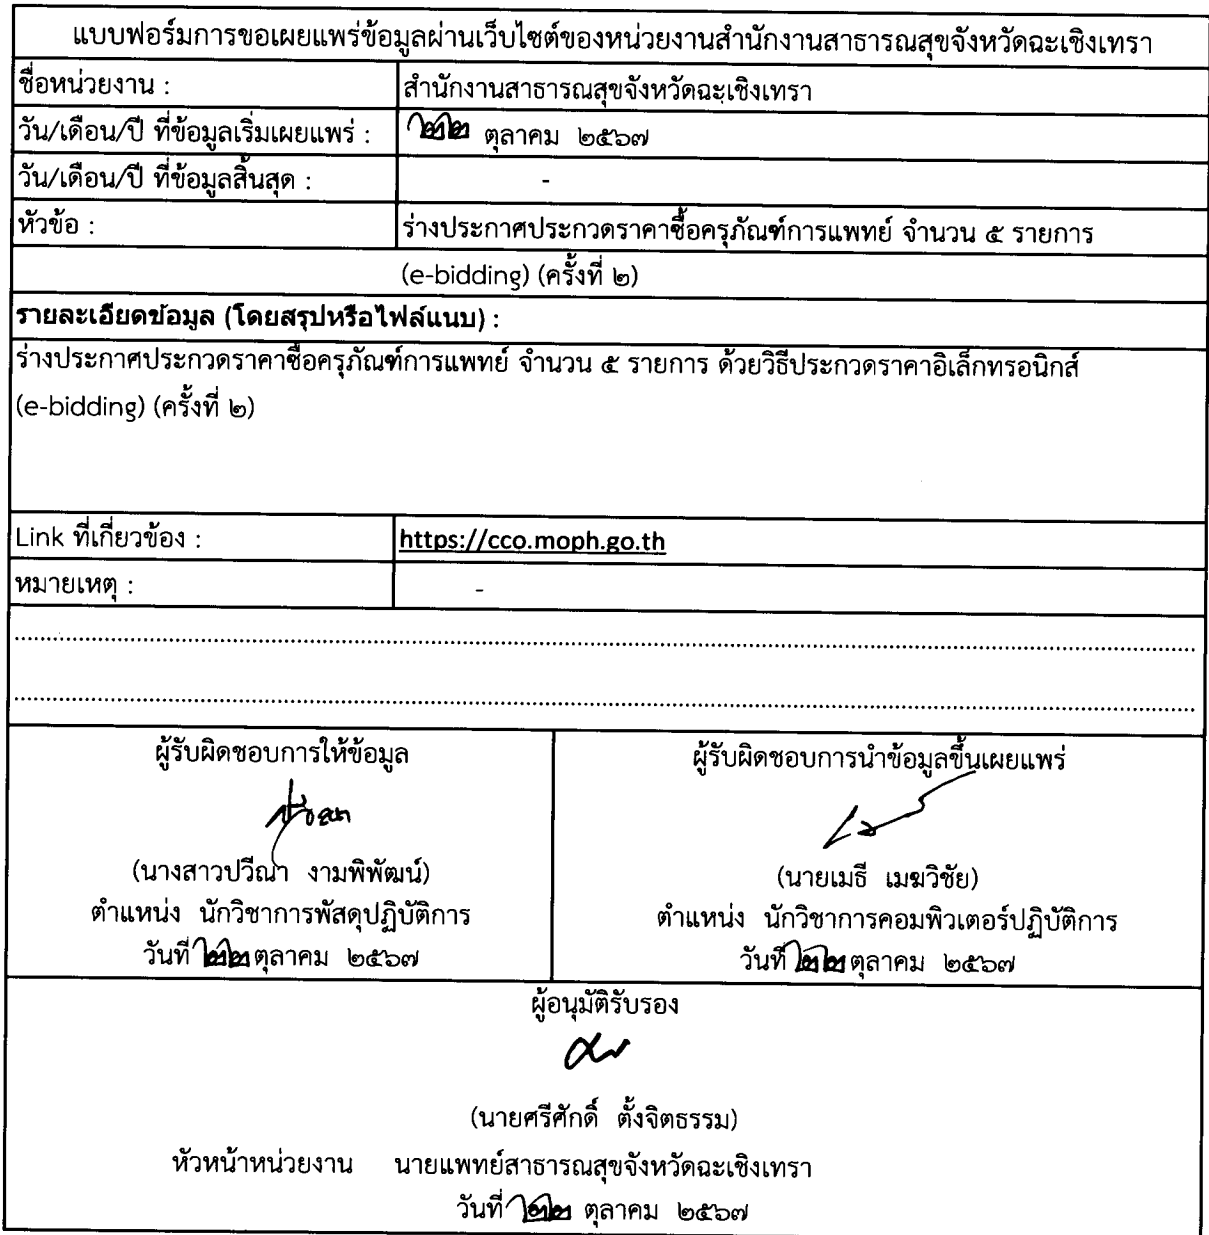 แบบฟอร์มการขอเผยแพร่ข้อมูลผ่านเว็บไซต์ของหน่วยงานสำนักงานสาธารณสุขจังหวัดฉะเชิงเทรา
ชื่อหน่วยงาน : สำนักงานสาธารณสุขจังหวัดฉะเชิงเทรา
วัน/เดือน/ปี ที่ข้อมูลเริ่มเผยแพร่ : ๒๒ ตุลาคม ๒๕๖๗
วัน/เดือน/ปี ที่ข้อมูลสิ้นสุด : -
หัวข้อ : ร่างประกาศประกวดราคาซื้อครุภัณฑ์การแพทย์ จำนวน ๕ รายการ
(e-bidding) (ครั้งที่ ๒)
รายละเอียดข้อมูล (โดยสรุปหรือไฟล์แนบ) :
ร่างประกาศประกวดราคาซื้อครุภัณฑ์การแพทย์ จำนวน ๕ รายการ ด้วยวิธีประกวดราคาอิเล็กทรอนิกส์
(e-bidding) (ครั้งที่ ๒)
Link ที่เกี่ยวข้อง : https://cco.moph.go.th
หมายเหตุ : -
ผู้รับผิดชอบการให้ข้อมูล
(นางสาวปวีณา งามพิพัฒน์)
ตำแหน่ง นักวิชาการพัสดุปฏิบัติการ
วันที่ ๒๒ ตุลาคม ๒๕๖๗
ผู้รับผิดชอบการนำข้อมูลขึ้นเผยแพร่
(นายเมธี เมฆวิชัย)
ตำแหน่ง นักวิชาการคอมพิวเตอร์ปฏิบัติการ
วันที่ ๒๒ ตุลาคม ๒๕๖๗
ผู้อนุมัติรับรอง
(นายศรีศักดิ์ ตั้งจิตธรรม)
หัวหน้าหน่วยงาน นายแพทย์สาธารณสุขจังหวัดฉะเชิงเทรา
วันที่ ๒๒ ตุลาคม ๒๕๖๗